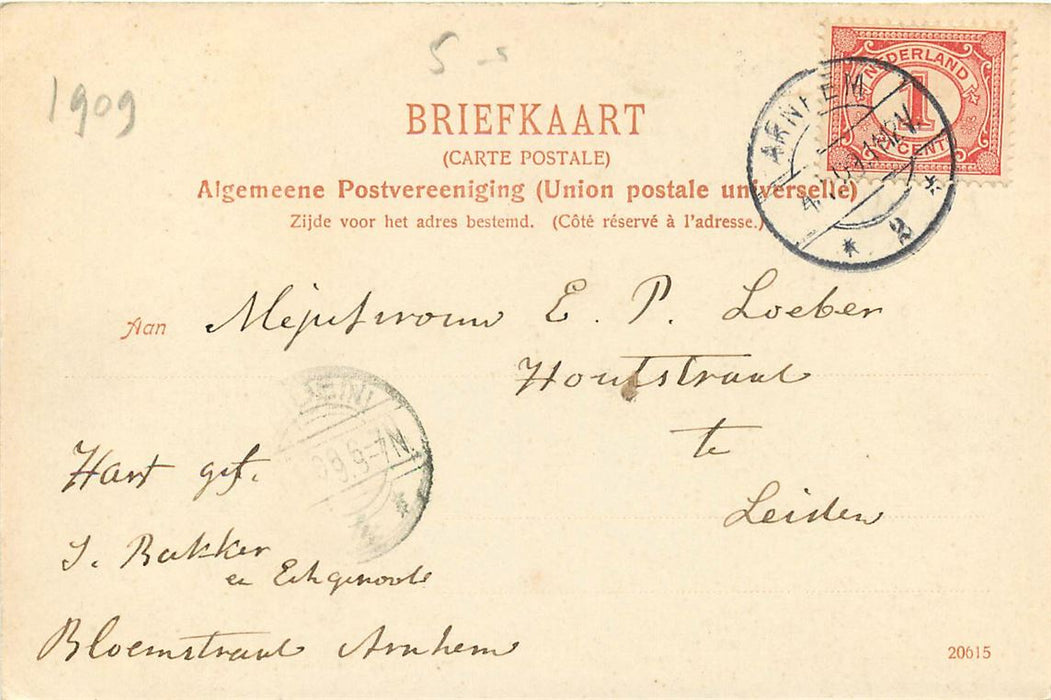 1909
5 -s
NEDERLAND
1
CENT
ARNHEM
2
BRIEFKAART
(CARTE POSTALE)
Algemeene Postvereeniging (Union postale universelle)
Zijde voor het adres bestemd. (Côté réservé à l'adresse.)
Aan Mejufvrouw E. P. Loeber
Houtstraat
te
Leiden
Hart gef.
J. Bakker
en Echgenoote
Bloemstraat Arnhem
20615